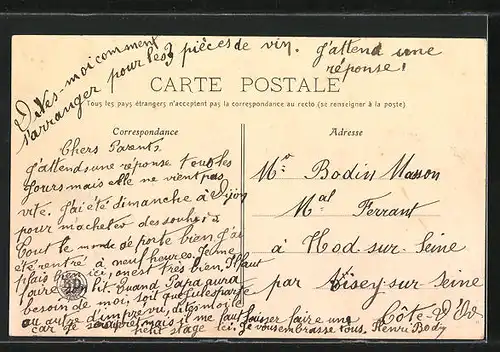 Dites-moi comment
s'arranger pour les 3 pièces de vin. J'attend une
réponse!
CARTE POSTALE
Tous les pays étrangers n'acceptent pas la correspondance au recto (se renseigner à la poste)
Correspondance
Chers Parents
J'attends une réponse tous les
jours mais elle ne vient pas
vite. J'ai été dimanche à Dijon
pour m'acheter des
Tout le monde se porte bien j'ai
été rentré à neuf heures. Je me
plais bien ici, on est très bien. Il faut
faire lit. Quand Papa aura
besoin de moi, soit que
ou autre d'imprévu, dites moi le
car je mais il me faut laisser faire une
petit stage ici. Je vous embrasse tous, Henri Bodin
Adresse
Mr Bodin Masson
Mal Ferrant
à Nod-sur-Seine
par Aisey-sur-Seine
Côte-d'Or